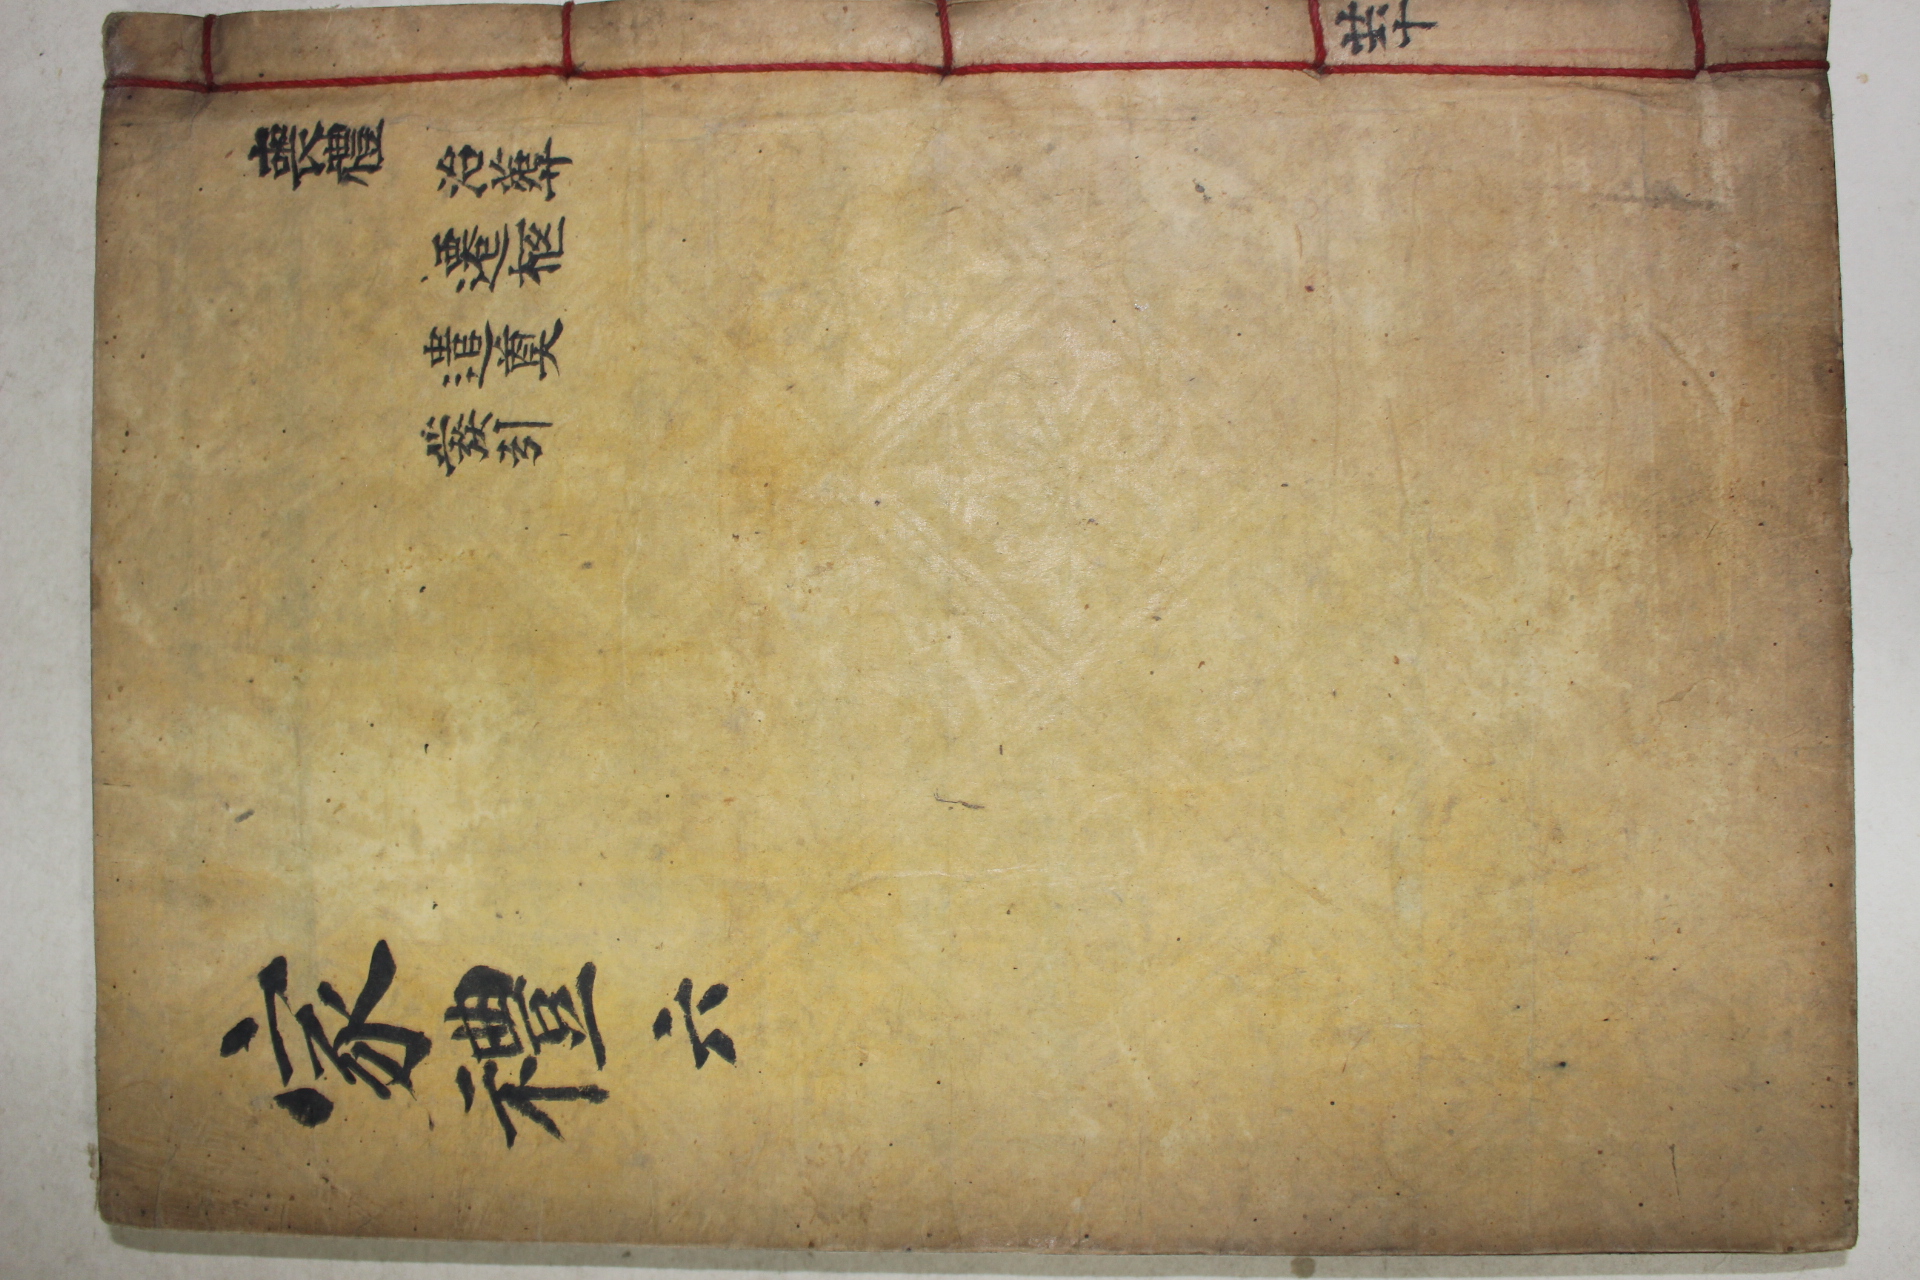 喪禮
治葬
遷柩
遣奠
發引
家禮 六
共十